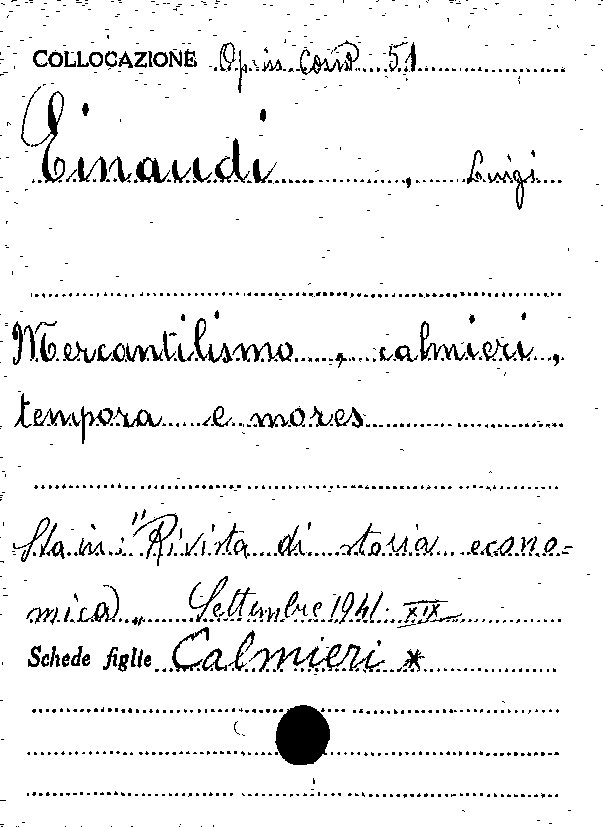 COLLOCAZIONE Opus Cont 51
Einaudi , Luigi
Mercantilismo , calmieri ,
tempora e mores
Sta in: "Rivista di storia econo=
mica„ Settembre 1941. XIX
Schede figlie Calmieri *